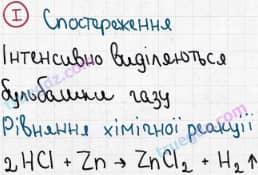 I Спостереження
Інтенсивно виділяються
бульбашки газу
Рівняння хімічної реакції
2HCl + Zn → ZnCl₂ + H₂↑